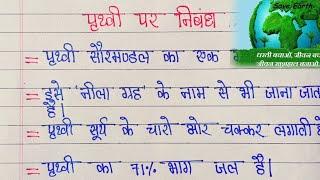 पृथ्वी पर निबंध
Save Earth
धरती बचाओ, जीवन बचाओ
= पृथ्वी सौरमण्डल का एक
= इसे 'नीला ग्रह' के नाम से भी जाना जाता
है।
= पृथ्वी सूर्य के चारो ओर चक्कर लगाती है
= पृथ्वी का 71% भाग जल है।